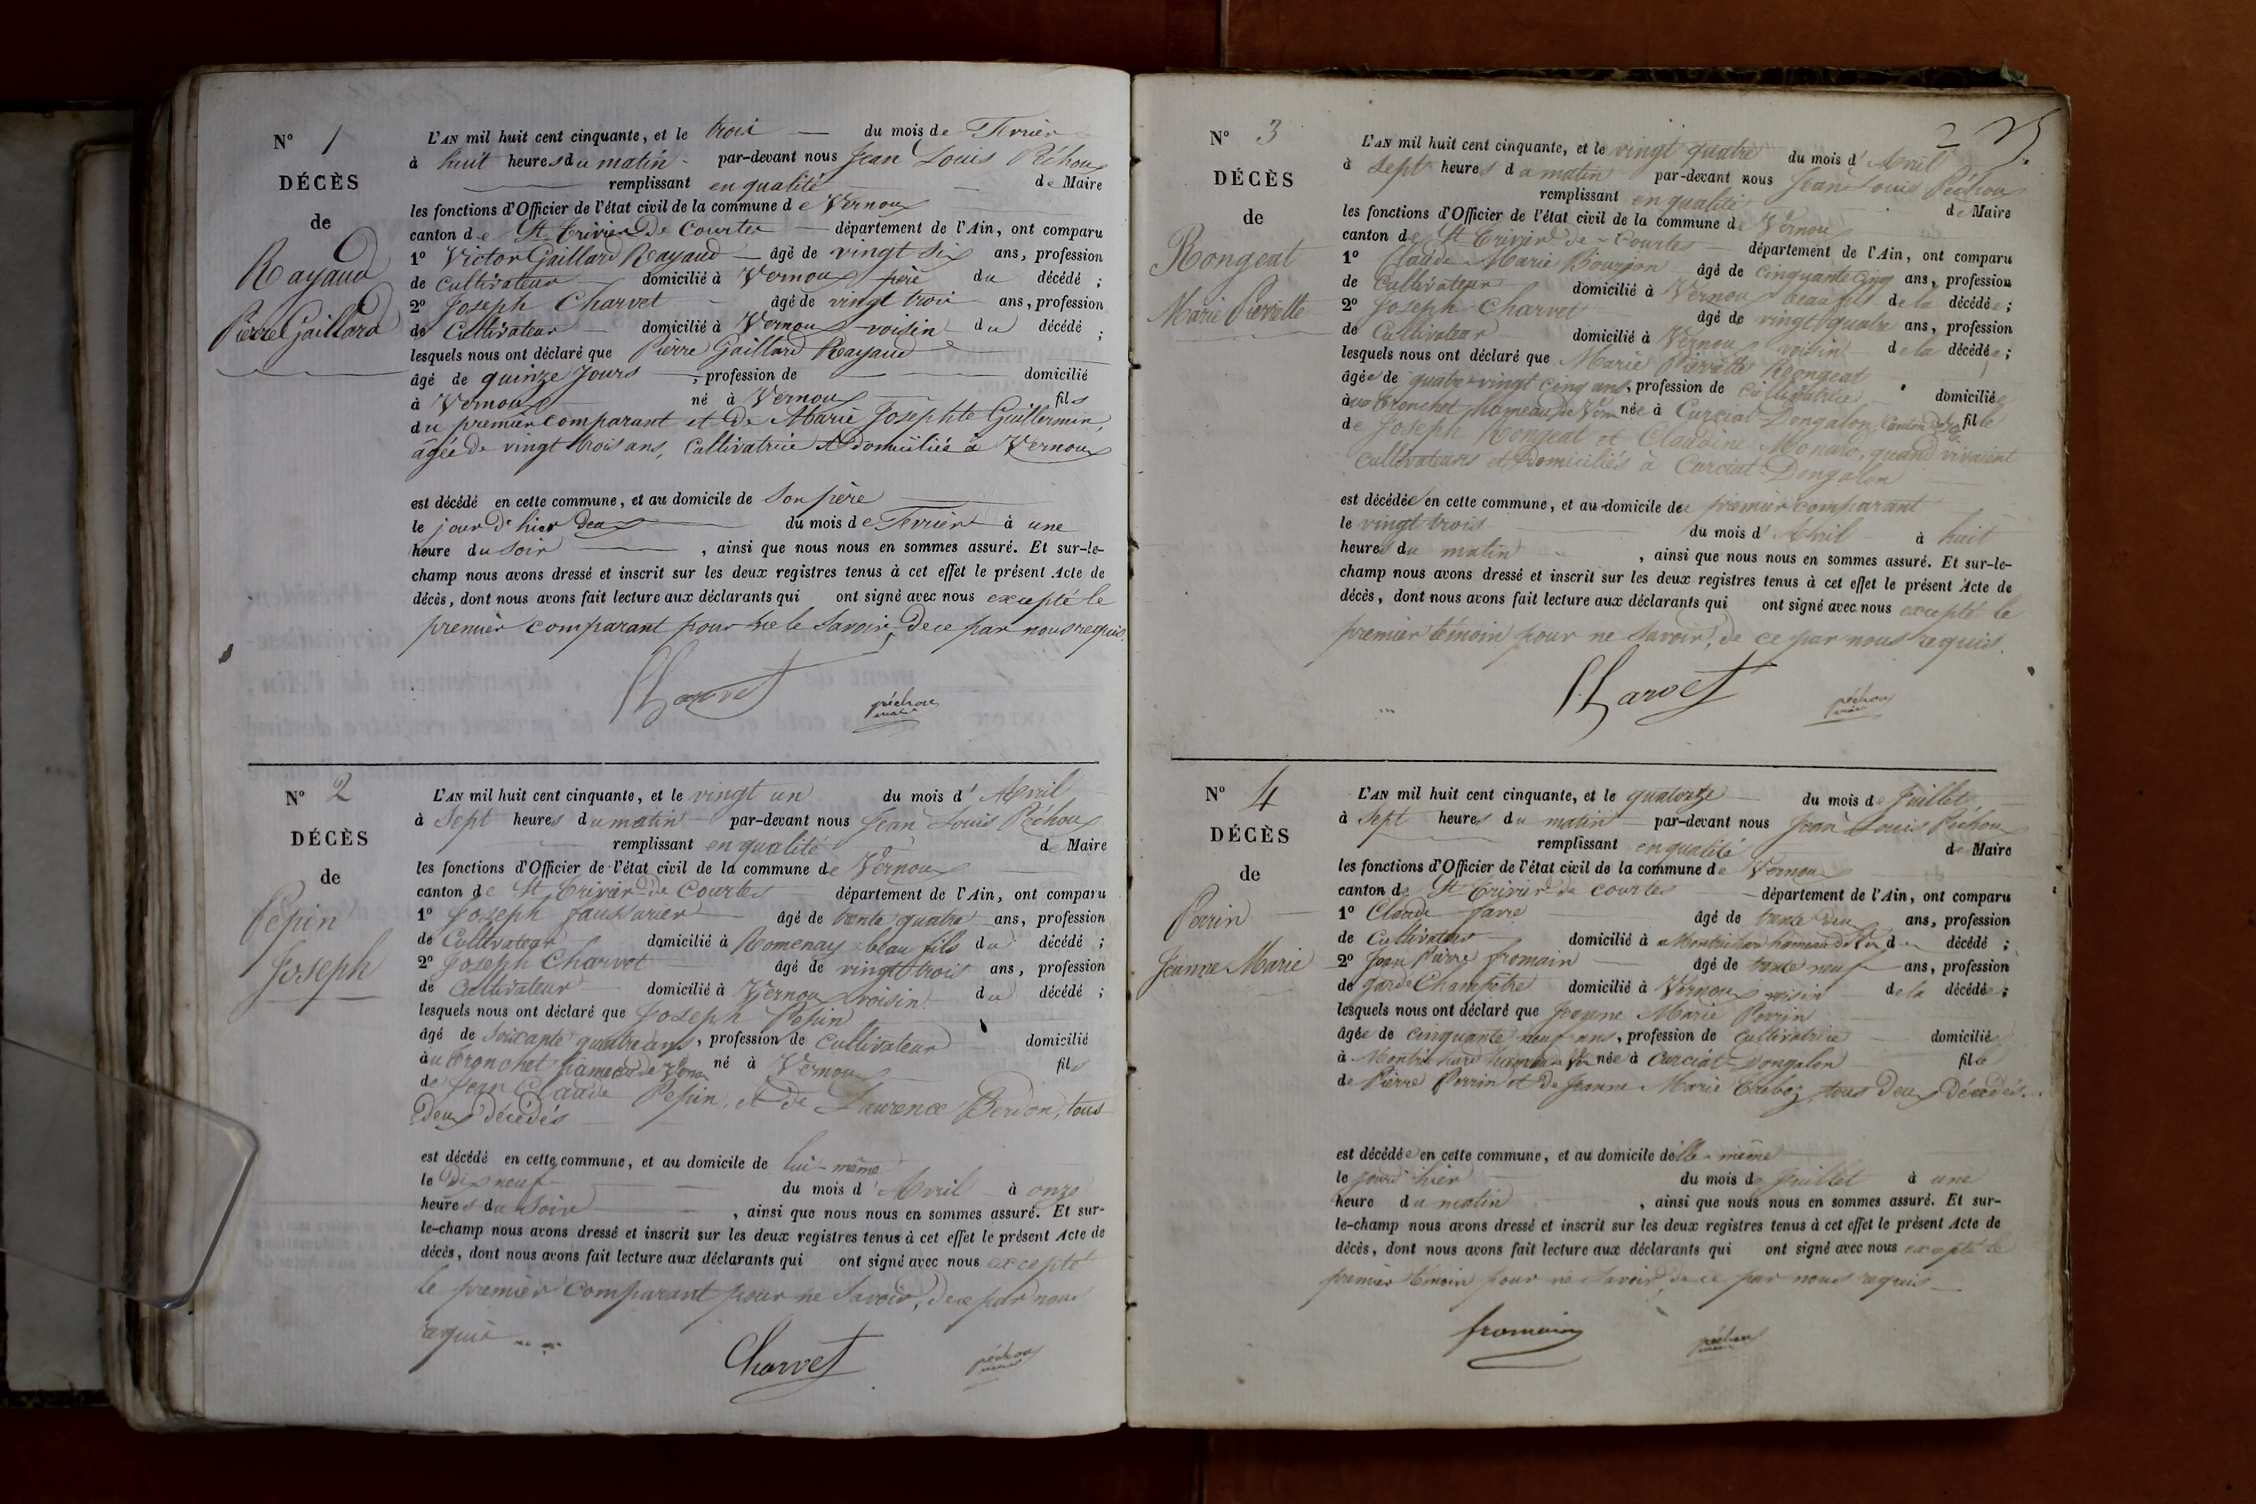 N° 1
DÉCÈS
de
Rayaud
Pierre Gaillard
L'AN mil huit cent cinquante, et le trois du mois de Fevrier
à huit heures du matin par-devant nous Jean Louis Péchoux
remplissant en qualité de Maire
les fonctions d'Officier de l'état civil de la commune de Vernoux
canton de St Trivier de Courtes département de l'Ain, ont comparu
1° Victor Gaillard Rayaud âgé de vingt six ans, profession
de cultivateur domicilié à Vernoux père du décédé ;
2° Joseph Charvet âgé de vingt trois ans, profession
de Cultivateur domicilié à Vernoux voisin du décédé ;
lesquels nous ont déclaré que Pierre Gaillard Rayaud
âgé de quinze Jours, profession de domicilié
à Vernoux né à Vernoux fils
du premier comparant et de Marie Josephte Guillermin,
âgée de vingt trois ans, Cultivatrice et domiciliée à Vernoux
est décédé en cette commune, et au domicile de Son père
le jour d'hier deux du mois de Fevrier à une
heure du soir, ainsi que nous nous en sommes assuré. Et sur-le-
champ nous avons dressé et inscrit sur les deux registres tenus à cet effet le présent Acte de
décès, dont nous avons fait lecture aux déclarants qui ont signé avec nous excepté le
premier comparant pour ne le Savoir, de ce par nous requis.
Charvet péchoux maire
N° 2
DÉCÈS
de
Pepin
Joseph
L'AN mil huit cent cinquante, et le vingt un du mois d'Avril
à Sept heures du matin par-devant nous Jean Louis Péchoux
remplissant en qualité de Maire
les fonctions d'Officier de l'état civil de la commune de Vernoux
canton de St Trivier de Courtes département de l'Ain, ont comparu
1° Joseph âgé de trente quatre ans, profession
de Cultivateur domicilié à Romenay beau fils du décédé ;
2° Joseph Charvet âgé de vingt trois ans, profession
de Cultivateur domicilié à Vernoux voisin du décédé ;
lesquels nous ont déclaré que Joseph Pepin
âgé de Soixante quatre ans, profession de Cultivateur domicilié
au tronchet hameau de Vernoux né à Vernoux fils
de Jean Claude Pepin, et de Laurence Berdon, tous
deux décédés
est décédé en cette commune, et au domicile de lui-même
le Dix neuf du mois d'Avril à onze
heures du Soir, ainsi que nous nous en sommes assuré. Et sur-
le-champ nous avons dressé et inscrit sur les deux registres tenus à cet effet le présent Acte de
décès, dont nous avons fait lecture aux déclarants qui ont signé avec nous excepté
le premier comparant pour ne Savoir, de ce par nous
requis
Charvet péchoux maire
2
N° 3
DÉCÈS
de
Rongeat
Marie Pierrette
L'AN mil huit cent cinquante, et le vingt quatre du mois d'Avril
à Sept heures du matin par-devant nous Jean Louis Péchoux
remplissant en qualité de Maire
les fonctions d'Officier de l'état civil de la commune de Vernoux
canton de St Trivier de Courtes département de l'Ain, ont comparu
1° Claude Marie Bourjon âgé de cinquante cinq ans, profession
de Cultivateur domicilié à Vernoux beau fils de la décédée ;
2° Joseph Charvet âgé de vingt quatre ans, profession
de Cultivateur domicilié à Vernoux voisin de la décédée ;
lesquels nous ont déclaré que Marie Pierrette Rongeat
âgée de quatre-vingt cinq ans, profession de Cultivatrice domiciliée
au tronchet hameau de Ver née à Curciat Dongalon, Canton fille
de Joseph Rongeat et Claudine Monard, quand vivaient
cultivateurs et domiciliés à Curciat Dongalon
est décédée en cette commune, et au domicile du premier comparant
le vingt trois du mois d'Avril à huit
heures du matin, ainsi que nous nous en sommes assuré. Et sur-le-
champ nous avons dressé et inscrit sur les deux registres tenus à cet effet le présent Acte de
décès, dont nous avons fait lecture aux déclarants qui ont signé avec nous excepté le
premier témoin pour ne Savoir, de ce par nous requis.
Charvet péchoux maire
N° 4
DÉCÈS
de
Perrin
Jeanne Marie
L'AN mil huit cent cinquante, et le quatorze du mois de Juillet
à Sept heures du matin par-devant nous Jean Louis Péchoux
remplissant en qualité de Maire
les fonctions d'Officier de l'état civil de la commune de Vernoux
canton de St Trivier de Courtes département de l'Ain, ont comparu
1° Claude favre âgé de trente deux ans, profession
de Cultivateur domicilié à hameau de Ver d décédé ;
2° Jean Pierre fromain âgé de trente neuf ans, profession
de garde Champêtre domicilié à Vernoux voisin de la décédée ;
lesquels nous ont déclaré que Jeanne Marie Perrin
âgée de cinquante neuf ans, profession de Cultivatrice domiciliée
à hameau de Ver née à Curciat Dongalon fille
de Pierre Perrin et de Jeanne Marie tous deux Décédés.
est décédée en cette commune, et au domicile d'elle-même
le jour d'hier du mois de Juillet à une
heure du matin, ainsi que nous nous en sommes assuré. Et sur-
le-champ nous avons dressé et inscrit sur les deux registres tenus à cet effet le présent Acte de
décès, dont nous avons fait lecture aux déclarants qui ont signé avec nous excepté le
premier témoin pour ne Savoir, de ce par nous requis
fromain péchoux maire